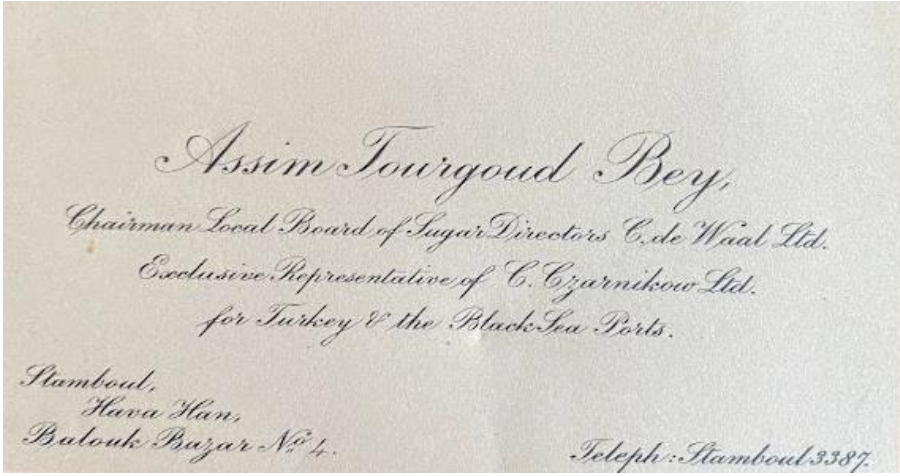 Assim Tourgoud Bey,
Chairman Local Board of Sugar Directors C. de Waal Ltd.
Exclusive Representative of C. Czarnikow Ltd.
for Turkey & the Black Sea Ports.
Stamboul,
Hava Han,
Balouk Bazar No 4.
Teleph: Stamboul 3387.